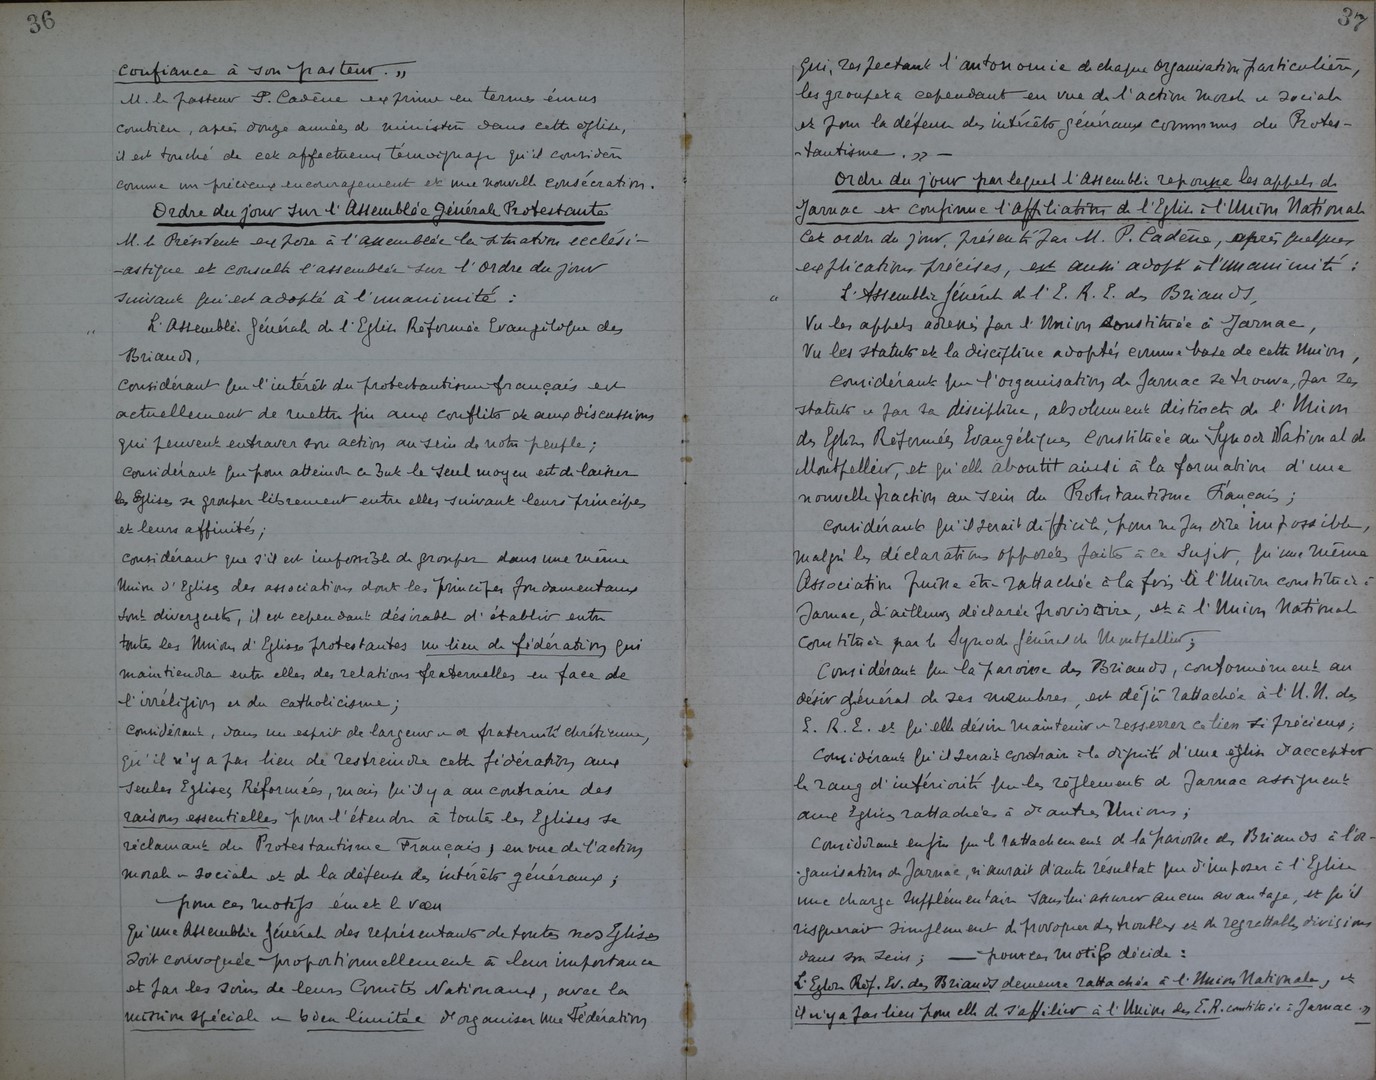 36
confiance à son pasteur. »
M. le pasteur P. Cadène exprime en termes émus
combien, après douze années de ministère dans cette église,
il est touché de cet affectueux témoignage qu'il considère
comme un précieux encouragement et une nouvelle consécration.
Ordre du jour sur l'Assemblée Générale Protestante
M. le Président expose à l'assemblée la situation ecclési-
-astique et consulte l'assemblée sur l'Ordre du jour
suivant qui est adopté à l'unanimité :
" L'Assemblée Générale de l'Eglise Réformée Evangélique des
Briands,
Considérant que l'intérêt du protestantisme français est
actuellement de mettre fin aux conflits et aux discussions
qui peuvent entraver son action au sein de notre peuple ;
considérant que pour atteindre ce but le seul moyen est de laisser
les Eglises se grouper librement entre elles suivant leurs principes
et leurs affinités ;
considérant que s'il est impossible de grouper dans une même
Union d'Eglises des associations dont les principes fondamentaux
sont divergents, il est cependant désirable d'établir entre
toutes les Unions d'Eglises protestantes un lien de fédération qui
maintiendra entre elles des relations fraternelles en face de
l'irréligion et du catholicisme ;
Considérant, dans un esprit de largeur et de fraternité chrétienne,
qu'il n'y a pas lieu de restreindre cette fédération aux
seules Eglises Réformées, mais qu'il y a au contraire des
raisons essentielles pour l'étendre à toutes les Eglises se
réclamant du Protestantisme Français, en vue de l'action
morale et sociale et de la défense des intérêts généraux ;
pour ces motifs émet le vœu
Qu'une Assemblée Générale des représentants de toutes nos Eglises
soit convoquée proportionnellement à leur importance
et par les soins de leurs Comités Nationaux, avec la
mission spéciale et bien limitée d'organiser une Fédération
37
qui, respectant l'autonomie de chaque Organisation particulière,
les groupera cependant en vue de l'action morale et sociale
et pour la défense des intérêts généraux communs du Protes-
-tantisme. » —
Ordre du jour par lequel l'Assemblée repousse les appels de
Jarnac et confirme l'affiliation de l'Eglise à l'Union Nationale
Cet ordre du jour, présenté par M. P. Cadène, après quelques
explications précises, est aussi adopté à l'unanimité :
" L'Assemblée Générale de l'E. R. E. des Briands,
Vu les appels adressés par l'Union constituée à Jarnac,
Vu les statuts et la discipline adoptés comme base de cette Union,
Considérant que l'organisation de Jarnac se trouve, par ses
statuts et par sa discipline, absolument distincte de l'Union
des Eglises Réformées Evangéliques constituée au Synode National de
Montpellier, et qu'elle aboutit ainsi à la formation d'une
nouvelle fraction au sein du Protestantisme Français ;
Considérant qu'il serait difficile, pour ne pas dire impossible,
malgré les déclarations opposées faites à ce sujet, qu'une même
Association puisse être rattachée à la fois à l'Union constituée à
Jarnac, d'ailleurs déclarée provisoire, et à l'Union Nationale
Constituée par le Synode Général de Montpellier ;
Considérant que la paroisse des Briands, conformément au
désir général de ses membres, est déjà rattachée à l'U. N. des
E. R. E. et qu'elle désire maintenir et resserrer ce lien si précieux ;
Considérant qu'il serait contraire à la dignité d'une église d'accepter
le rang d'infériorité que les règlements de Jarnac assignent
aux Eglises rattachées à d'autres Unions ;
Considérant enfin que le rattachement de la paroisse des Briands à l'or-
-ganisation de Jarnac, n'aurait d'autre résultat que d'imposer à l'Eglise
une charge supplémentaire sans lui assurer aucun avantage, et qu'il
risquerait simplement de provoquer des troubles et de regrettables divisions
dans son sein ; — pour ces motifs décide :
L'Eglise Réf. Ev. des Briands demeure rattachée à l'Union Nationale, et
il n'y a pas lieu pour elle de s'affilier à l'Union des E.R. constituée à Jarnac. »